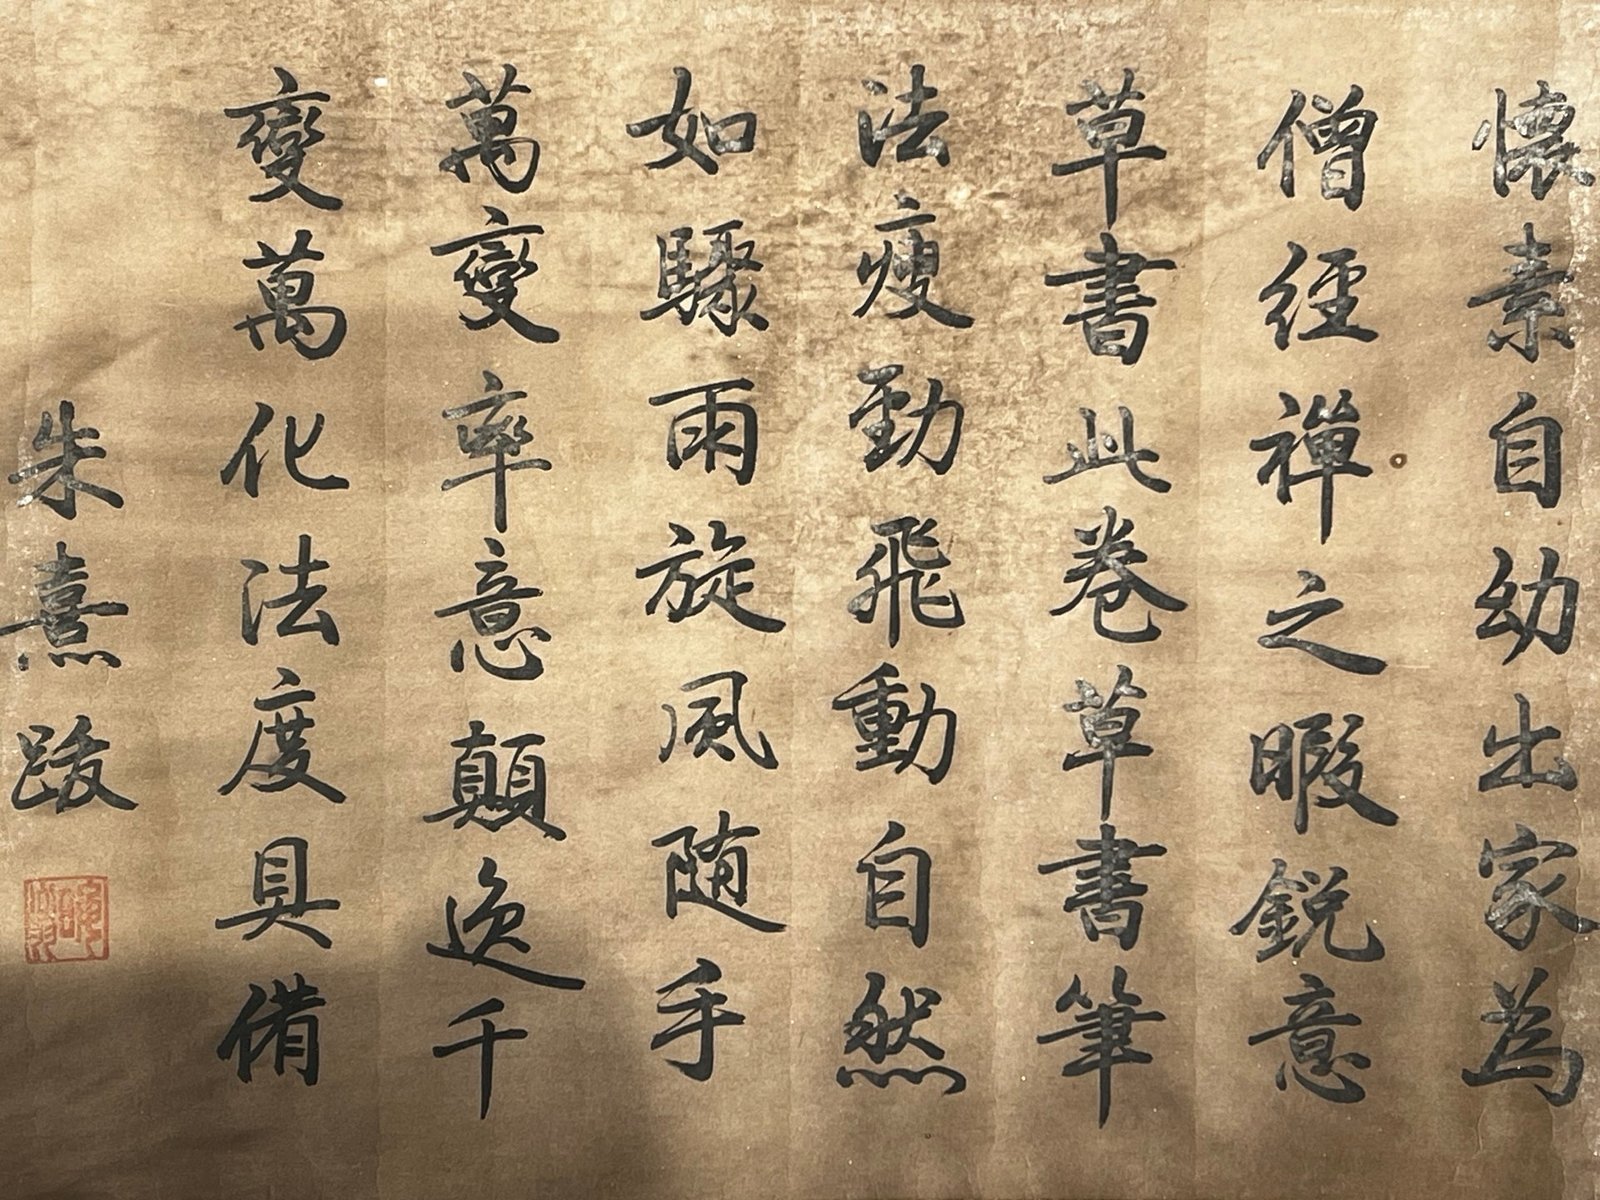 懷素自幼出家為
僧經禪之暇鋭意
草書此卷草書筆
法瘦勁飛動自然
如驟雨旋風随手
萬變率意顛逸千
變萬化法度具備
朱熹跋